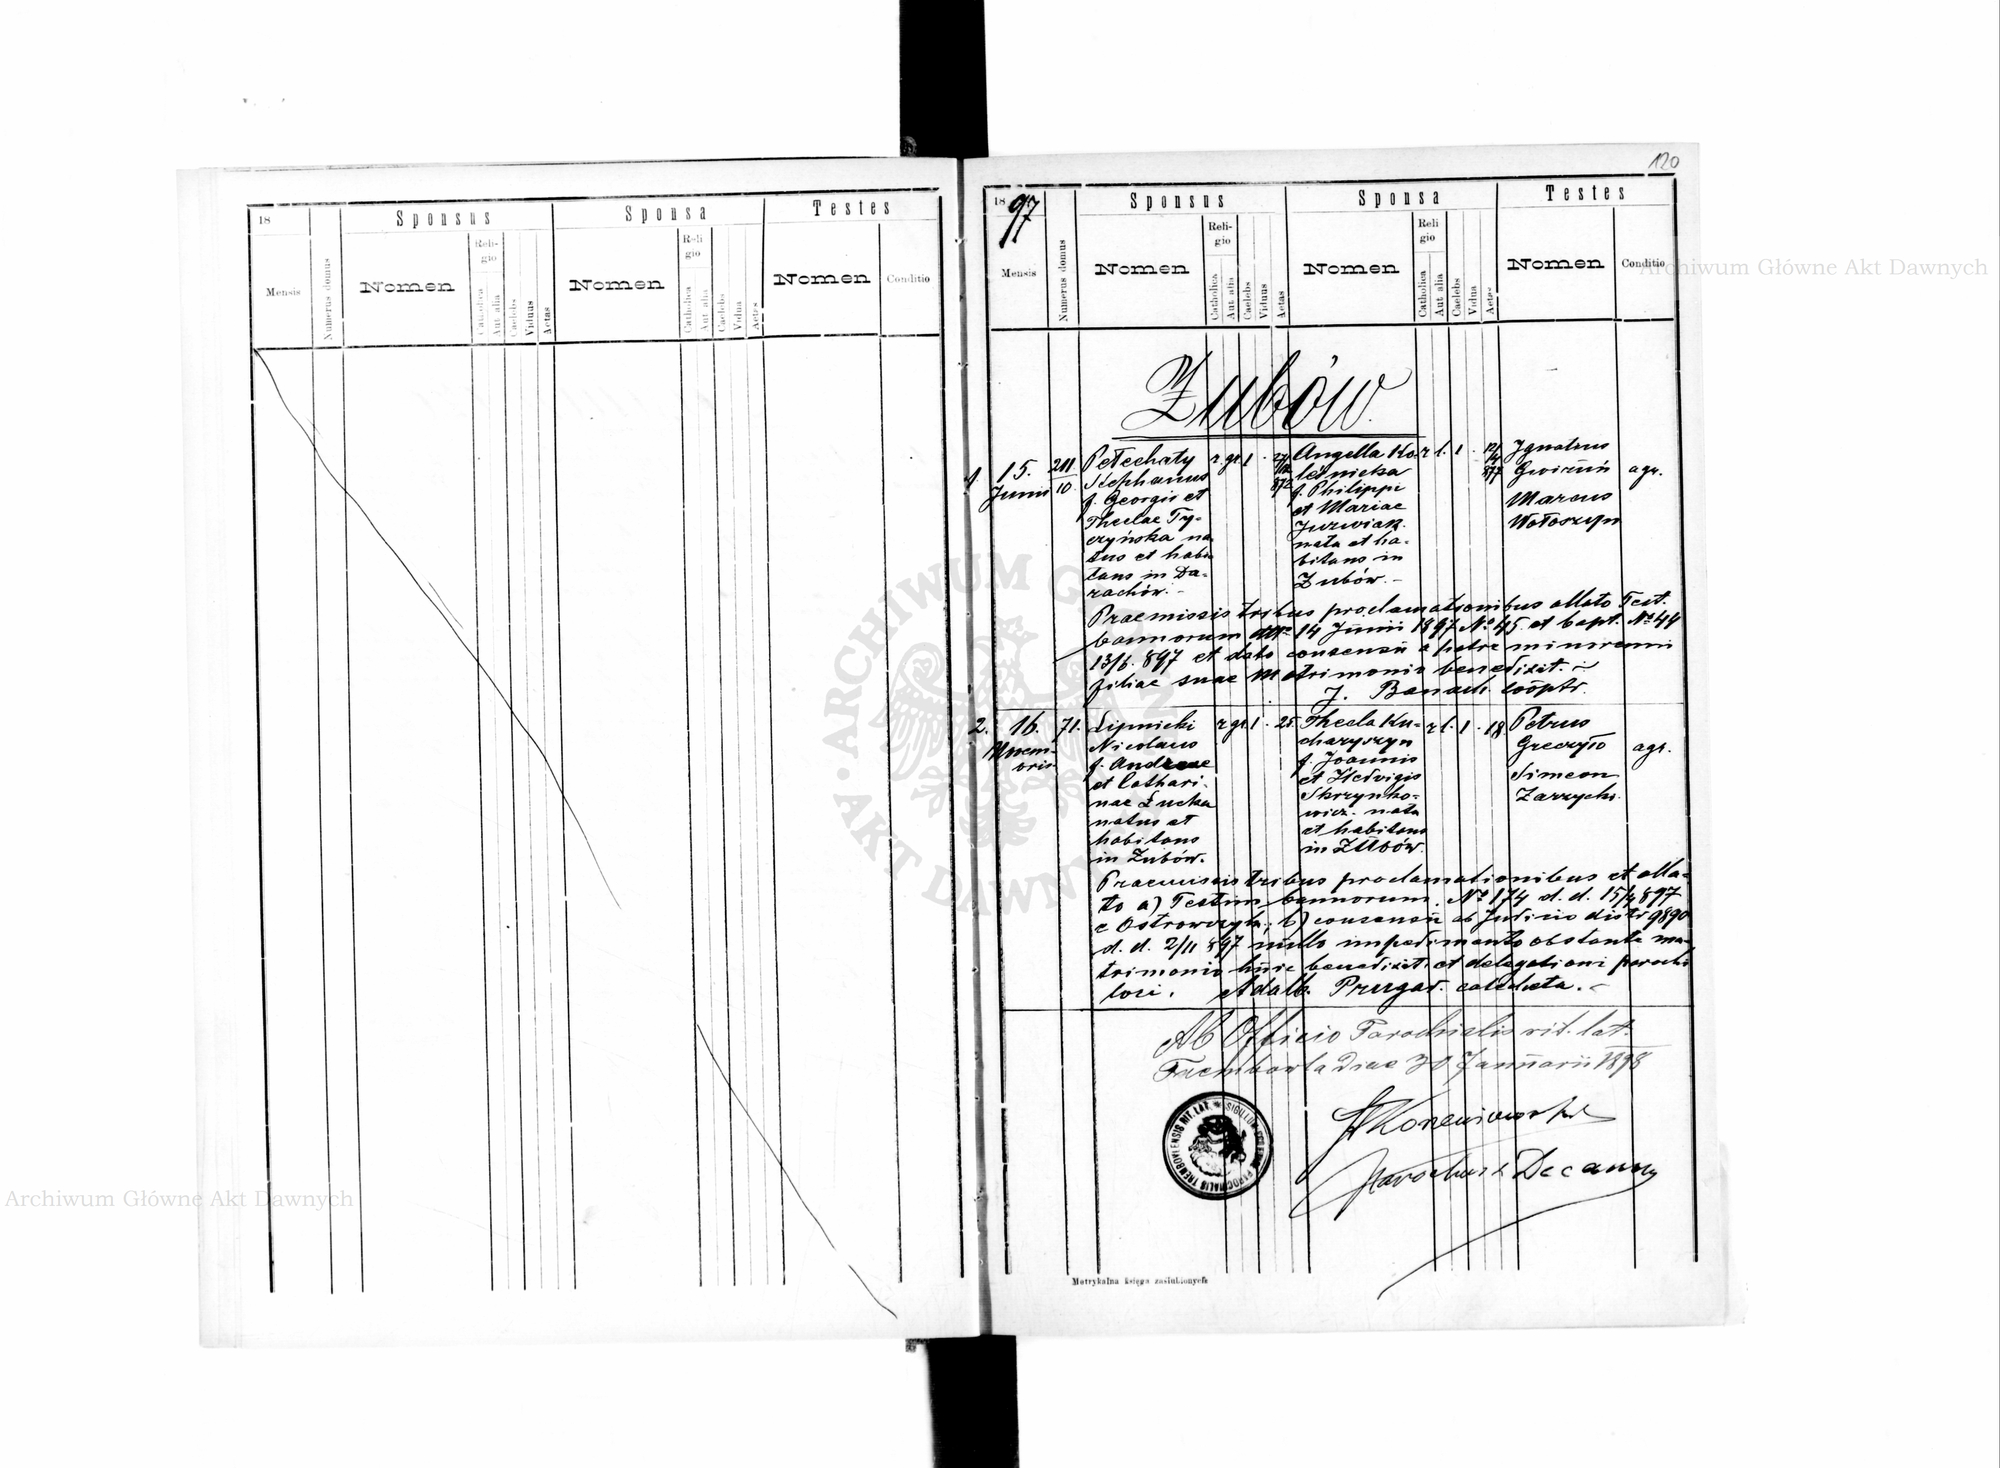 120
18
Mensis
Numerus domus
Sponsus
Nomen
Religio
Catholica
Aut alia
Caelebs
Viduus
Aetas
Sponsa
Nomen
Religio
Catholica
Aut alia
Caelebs
Vidua
Aetas
Testes
Nomen
Conditio
1897
Mensis
Numerus domus
Sponsus
Nomen
Reli-
gio
Catholica
Aut alia
Caelebs
Viduus
Aetas
Sponsa
Nomen
Reli
gio
Catholica
Aut alia
Caelebs
Vidua
Aetas
Testes
Nomen
Conditio
Zubów.
1. 15.
Junii
211
10
Petechaty
Stephanus
f. Georgii et
Theclae Ty-
czyńska na-
tus et habi-
tans in Da-
rachów.
r. gr. 1
27/12
872
Angella Ko-
leśnicka
f. Philippi
et Mariae
Jurwiak.
nata et ha-
bitans in
Zubów.
r. l. 1
12/4
877
Ignatius
Marcus
Wołoszyn
agr.
Praemissis tribus proclamationibus allato Test.
bannorum 14 Junii 1897 No 45. et bapt. No 44
13/6. 897 et dato consensu a patre minorenni
filiae suae matrimonio benedixit.
J. Banach cooptr.
2. 16.
71.
Lipnicki
Nicolaus
f. Andreae
et Cathari-
nae Łucka
natus et
habitans
in Zubów.
r. gr. 1. 25
Thecla Ku-
charyszyn
f. Joannis
et Hedvigis
Skrzynko-
wicz. nata
et habitans
in Zubów
r. l. 1. 18
Petrus
Greczyło
Simeon
Zarzycki.
agr.
Praemissis tribus proclamationibus et alla-
to a) Testim. bannorum. No 174 d. d. 15/4 897
b) consensu ab Judicio distr 9890
d. d. 2/11 897 nullo impedimento obstante ma-
trimonio huic benedixit et delegationi parochi
loci. Adalb. Prugar. catecheta.
Ab Officio Parochialis rit. lat.
Trembowla Diae 30 Januarii 1898
Parochus & Decanus
SIGILLUM PAROCHIALIS TREMBOWLENSIS RIT. LAT.
Matrykalna księga zaślubionych
ARCHIWUM GŁÓWNE AKT DAWNYCH
Archiwum Główne Akt Dawnych
Archiwum Główne Akt Dawnych